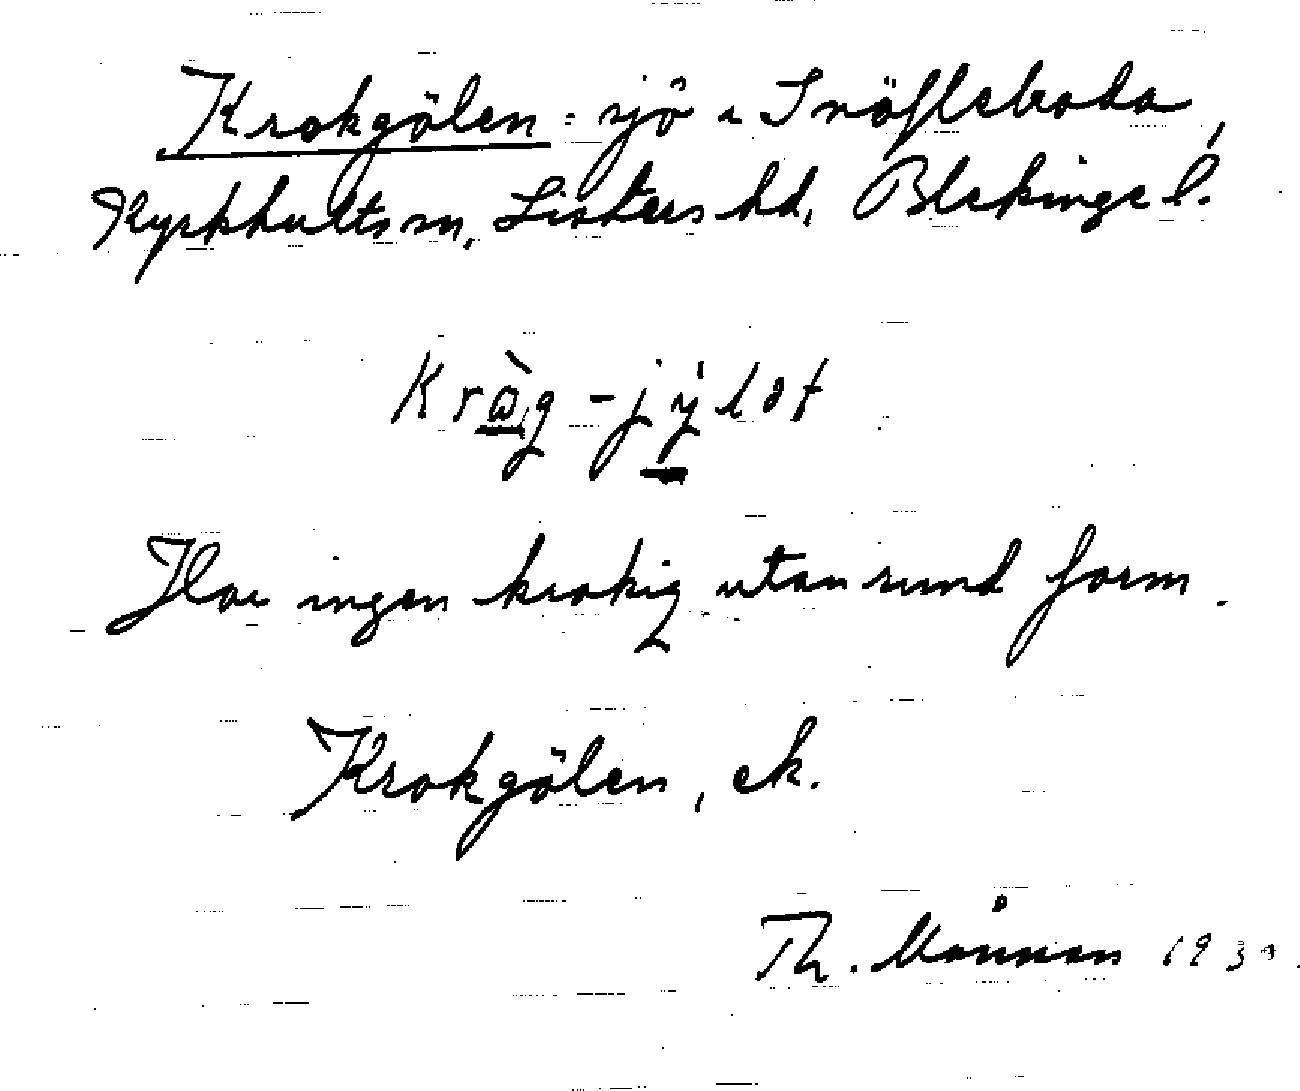 Krokgölen: sjö i Snöfleboda,
Kyrkhults sn, Listers hd, Blekinge l.
Kràg-jýlət
Har ingen krokig utan rund form.
Krokgölen, ek.
Th. Månson